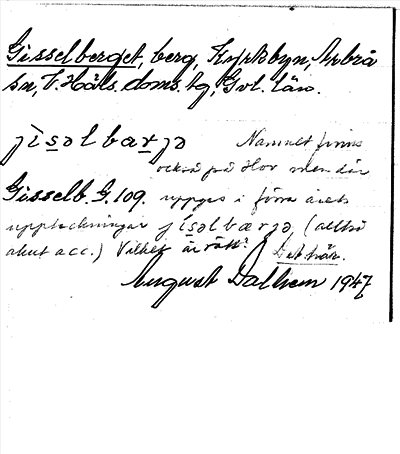 Gisselberget, berg, Kyrkbyn, Arbrå
sn, V. Häls. doms. tg, Gvl. län.
jìsəlbarjə Namnet finns
också på Hor men där
Gisselb. G. 109. uppges i förra årets
uppteckningar jísəlbærjə, (alltså
akut acc.) Vilket är rätt?
Det här.
August Dalhem 1947